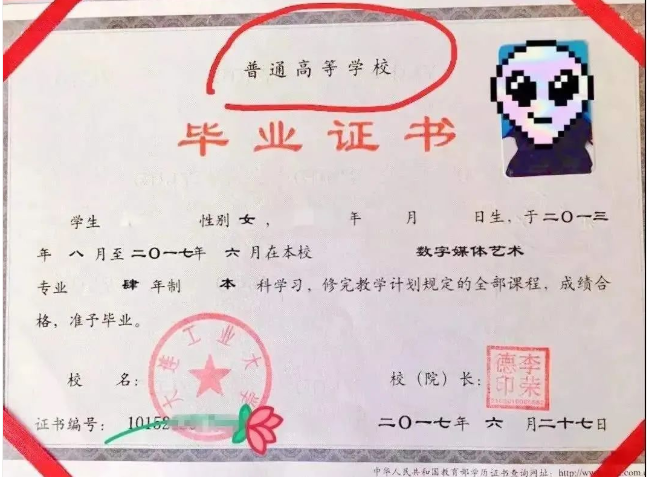 普通高等学校
毕业证书
学生 性别 女， 年 月 日生，于二〇一三
年 八 月至 二〇一七年 六 月在本校 数字媒体艺术
专业 肆 年制 本 科学习，修完教学计划规定的全部课程，成绩合
格，准予毕业。
大连工业大学
校 名：
校（院）长：
李荣德印
证书编号： 10152
二〇一七年 六 月二十七日
中华人民共和国教育部学历证书查询网址：http://www